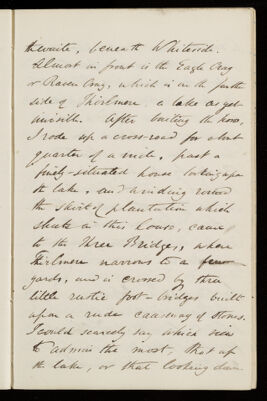 thwaite, beneath Whiteside.
Almost in front is the Eagle Crag
or Raven Crag, which is on the further
side of Thirlmere, a lake as yet
invisible. After baiting the horse,
I rode up a cross-road for about
quarter of a mile, past a
finely-situated house looking up
the lake, and winding round
the skirt of plantation which
shuts in this house, came
to the three Bridges, where
Thirlmere narrows to a few
yards, and is crossed by three
little rustic foot-bridges built
upon a rude causeway of stones.
I could scarcely say which view
to admire the most, that up
the lake, or that looking down